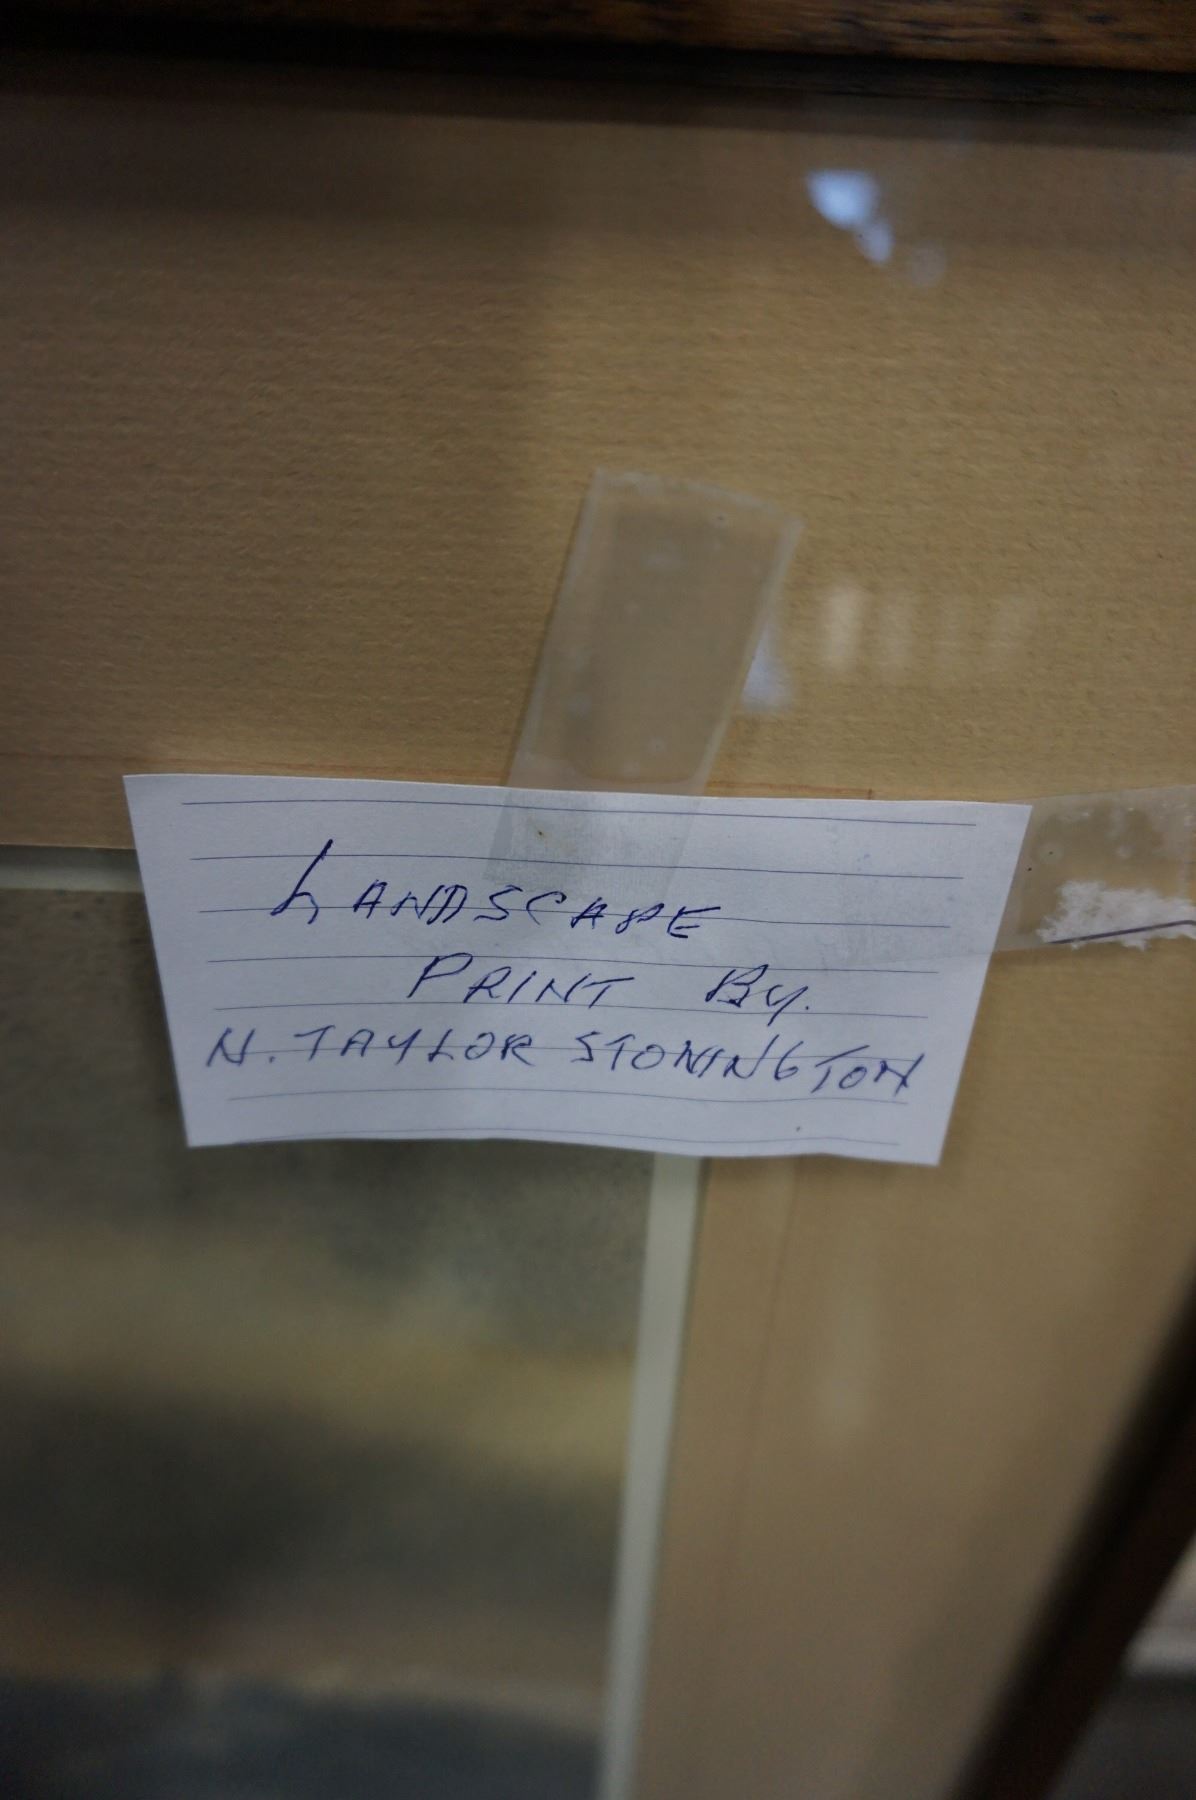 LANDSCAPE
PRINT By.
N. TAYLOR STONINGTON